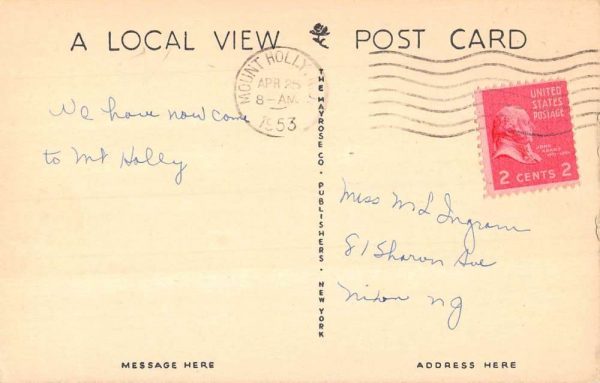 A LOCAL VIEW POST CARD
MOUNT HOLLY,
APR 25
8-AM
1953
UNITED
STATES
POSTAGE
JOHN
ADAMS
2 CENTS 2
We have now come
to Mt Holly
THE MAYROSE CO. · PUBLISHERS · NEW YORK
Miss M L Ingram
81 Sharon Ave
Nixon NJ
MESSAGE HERE
ADDRESS HERE